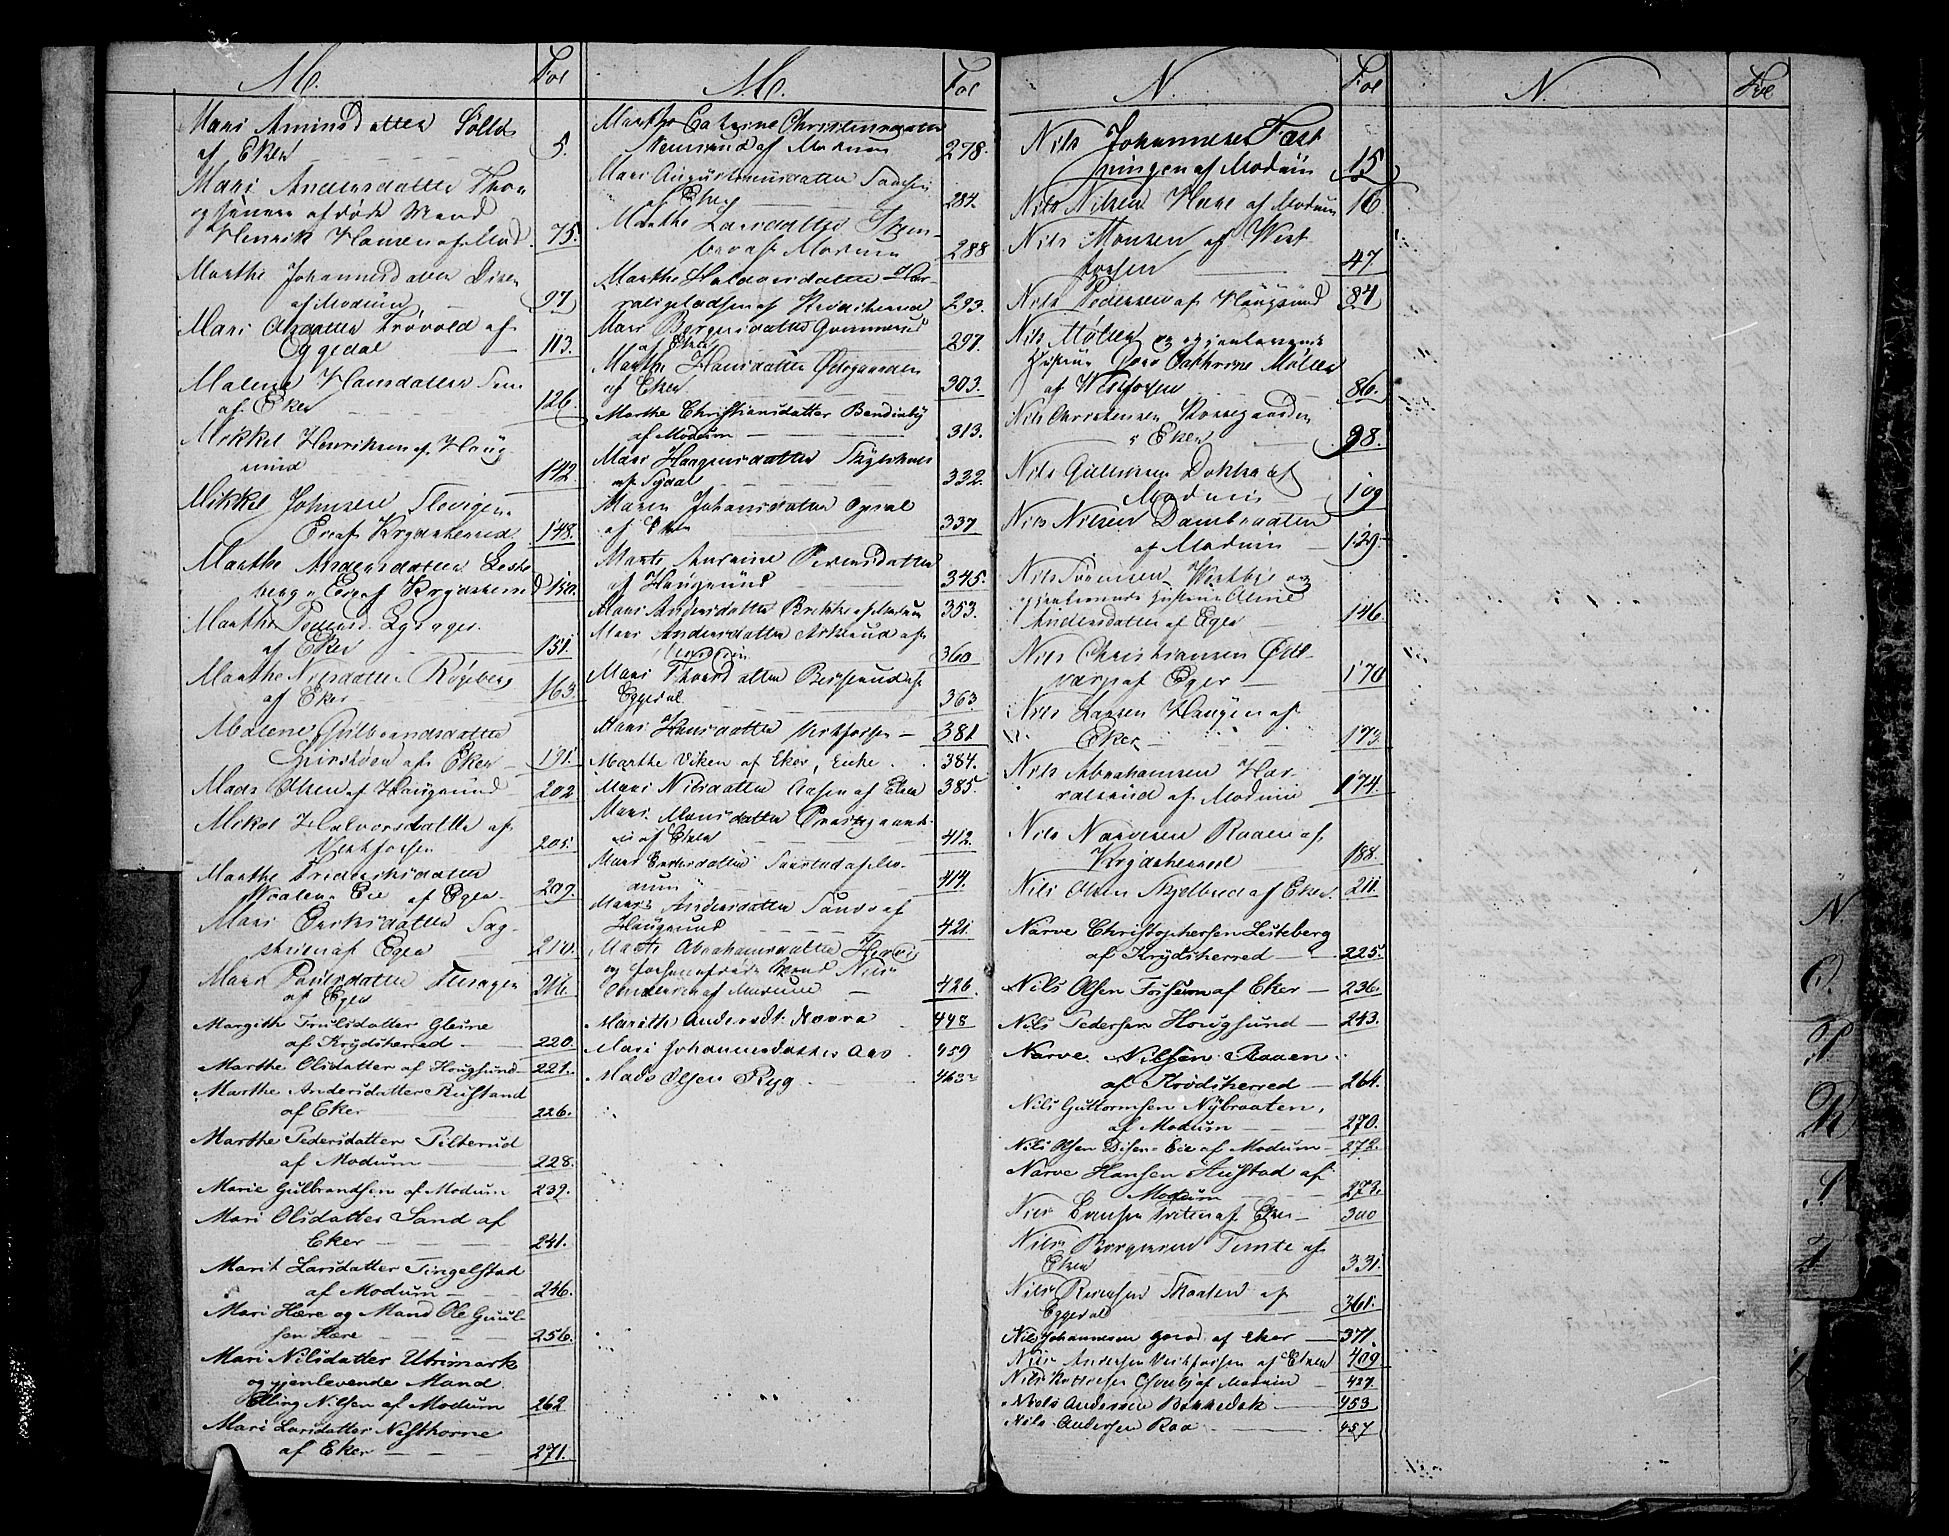 M. Fol
Mari Amundsdatter
af Eker 5.
Mari Andersdatter Thon
og hennes afdøde Mand
Henrik Hansen af Mod. 75.
Marthe Johannesdatter Disen
af Modum 97
Mari Olsdatter Trøvold af
Eggedal 113.
Malene Hansdatter
af Eker 126
Mikkel Henriksen af Houg-
sund 142
Mikkel Johnsen
Eie af Krydsherred 148.
Marthe Andersdatter Leste-
berg Eie af Krydsherred 150.
Marthe Pedersd.
af Eker 151.
Marthe Nilsdatter Røgeberg
af Eker 163.
Malene Gulbrandsdatter
af Eker 191.
Mads Olsen af Haugsund 202
Mikal Halvorsdatter af
Vestfossen 205.
Marthe Frederiksdatter
Eie af Eger 209.
Mari Eriksdatter Sag-
stuen af Eger 210.
Mari Paulsdatter
af Eger 216.
Margith Trulsdatter Gleine
af Krydsherred 220.
Marthe Olsdatter af Hougsund 221.
Marthe Andersdatter Rustand
af Eker 226.
Marthe Pedersdatter Tilterud
af Modum 228.
Marie Gulbrandsen af Modum 239.
Mari Olsdatter Sand af
Eker 241.
Marit Larsdatter Tingelstad
af Modum 246.
Mari Hære og Mand Ole Guul-
sen Hære 256.
Mari Nilsdatter Utrimark
og gjenlevende Mand
Elling Nilsen af Modum 262
Mari Larsdatter Nesthorne
af Eker 271.
M. Fol
Marthe Catrine Christensdatter
Stensrud af Modum 278.
Mari Augustinusdatter
af Eker 284.
Marthe Larsdatter Steen-
bro af Modum 288
Marthe Halvorsdatter
af Krødsherred 293.
Mari Børgersdatter
af Eker 297.
Marthe Hansdatter Østegaarden
af Eker 303.
Marthe Christiansdatter Bendiksby
af Modum 313.
Mari Haagensdatter
af Sigdal 332.
Maren Johansdatter Opsal
af Eker 337
Marte Andrine Pedersdatter
af Haugsund 345.
Mari Andersdatter Brekke af Modum 353.
Mari Andersdatter Askerud af
Modum 360
Mari Thoresdatter af
Eggedal 363
Mari Hansdatter Vestfossen 381
Marthe Viken af Eker, Enke 384.
Mari Nilsdatter Aasen af Eker 385.
Mari Monsdatter Præstegaard-
ei af Eker 412.
Mari Endersdatter af Mo-
dum 414.
Maria Andersdatter Sando af
Haugsund 421.
Marte Abrahamsdatter
og hendes afdøde Mand Nils
Andersen af Modum 426.
Marithe Andersdt. Hovra 448
Mari Johannesdatter Aas 459
Mads Olsen Ryg 463
N. Fol
Nils Johannesen Fast
tningen af Modum 15
Nils Nilsen Hære af Modum 16.
Nils Monsen af Vest
fossen 47.
Nils Pedersen af Haugsund 84
Nils Møller og gjenlevende
Hustru Cathrine Møller
af Westfossen 86.
Nils Christensen Korsegaarden
Eker 98.
Nils Gulliksen Dokka af
Modum 109
Nils Nilsen Dambraaten
af Modum 129.
Nils Sørensen Vestbye og
gjenlevende Hustrue Aline
Andersdatter af Eger 146
Nils Christiansen Ødt-
varp af Eger 170
Nils Larsen Haugen af
Eker 173
Nils Abrahamsen Har-
ralsrud af Modum 174.
Nils Narvesen Raaen af
Krydsherred 188.
Nils Olsen Skjelbred af Eker 211.
Narve Christophersen Lesteberg
af Krydsherred 225.
Nils Olsen Fossum af Eker 236.
Nils Pedersen Hougsund 243.
Narve Nilsen Raaen
af Krødsherred 264.
Nils Guttormsen Nybraaten
af Modum 270.
Nils Olsen Disen-Eie af Modum 272.
Narve Hansen Austad af
Modum 273.
Nils Larsen af Eker 300
Nils Borgersen Temte af
Eker 331.
Nils Skaaten af
Eggedal 361.
Nils Johannesen af Eker 377.
Nils Andersen Vestfossen af Eker 409
Nils af Modum 427.
Niels Andersen Bakkedek 453
Nils Andersen Raa 457
N. Fol
N.
O.
P
R
S
T